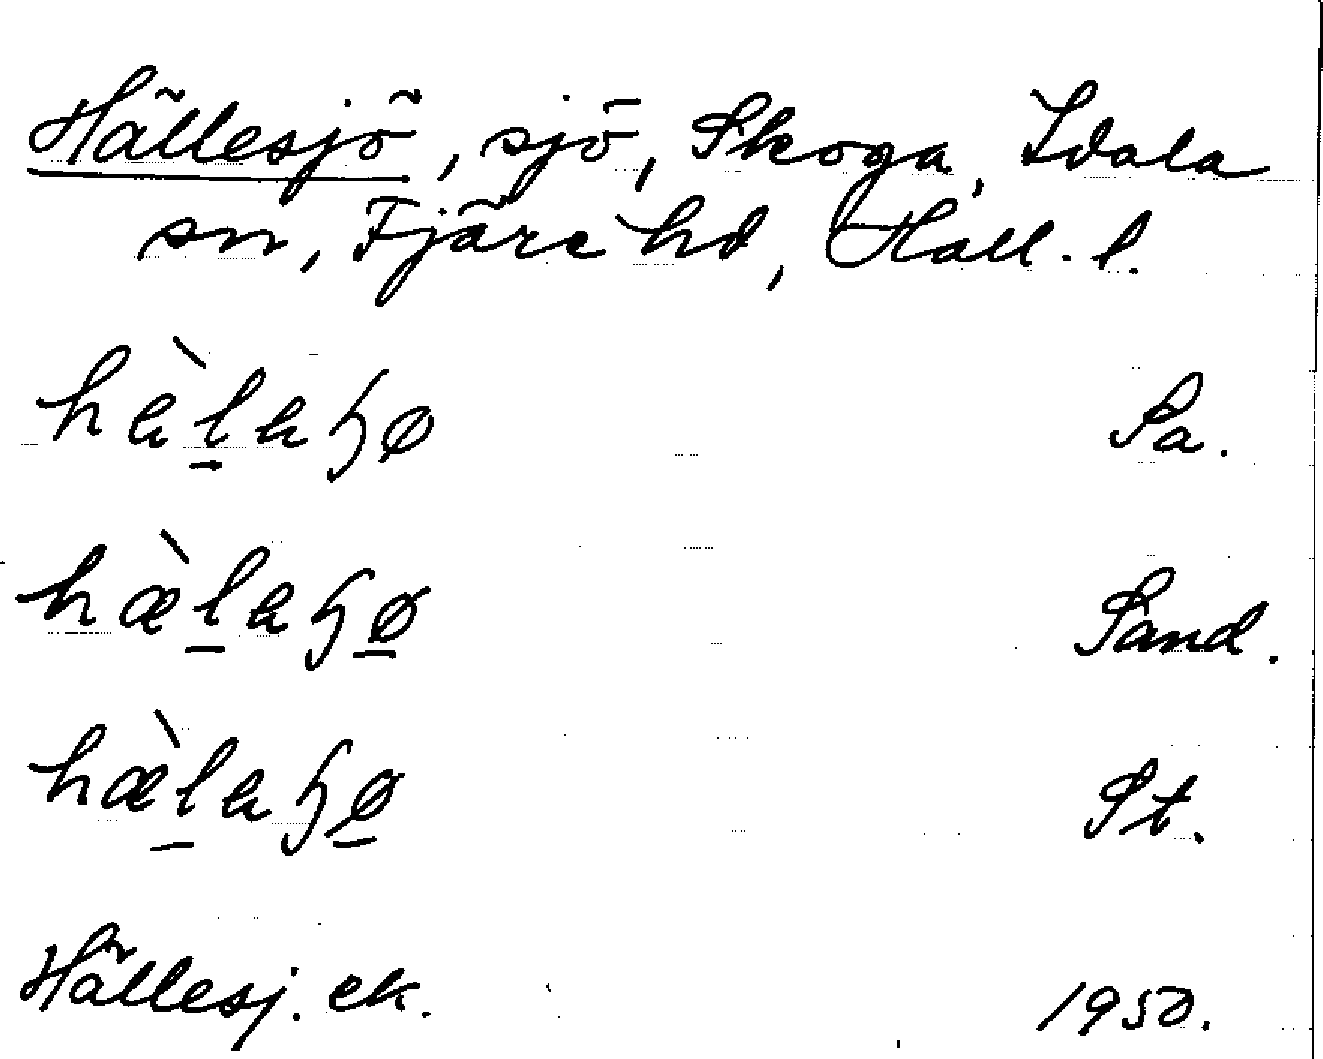 Hällesjö, sjö, Skoga, Idala
sn, Fjäre hd, Hall. l.
hàl̲aɧø Sa.
hæ̀l̲aɧø̲ Sand.
hæ̀l̲aɧø̲ St.
Hällesj. ek. 1950.